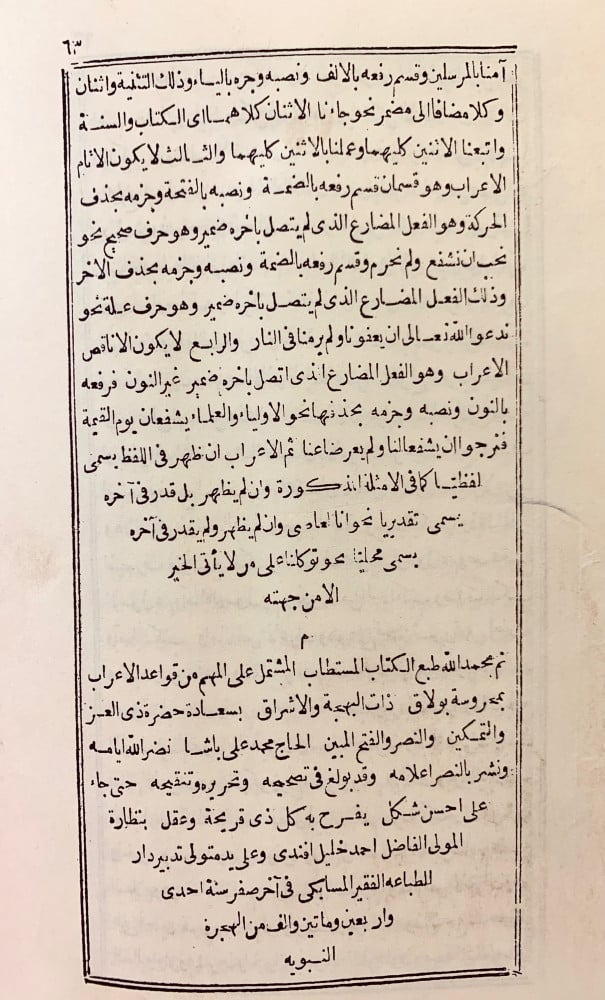 ٦٣
آمنا بالمرسلين وقسم رفعه بالالف ونصبه وجره بالياء وذلك التثنية واثنان
وكلا مضافا الى مضمر نحو جاءنا الاثنان كلاهما اى الكتاب والسنة
واتبعنا الاثنين كليهما وعملنا بالاثنين كليهما والثالث لا يكون الا تام
الاعراب وهو قسمان قسم رفعه بالضمة ونصبه بالفتحة وجزمه بحذف
الحركة وهو الفعل المضارع الذى لم يتصل باخره ضمير وهو حرف صحيح نحو
نحب ان نشفع ولم نحرم وقسم رفعه بالضمة ونصبه وجزمه بحذف الآخر
وذلك الفعل المضارع الذى لم يتصل باخره ضمير وهو حرف علة نحو
ندعوا الله تعالى ان يعفونا ولم يرمنا فى النار والرابع لا يكون الا ناقص
الاعراب وهو الفعل المضارع الذى اتصل باخره ضمير غير النون فرفعه
بالنون ونصبه وجزمه بحذفها نحو الاولياء والعلماء يشفعان يوم القيمة
فنرجوا ان يشفعا لنا ولم يعرضا عنا ثم الاعراب ان ظهر فى اللفظ يسمى
لفظيا كما فى الامثلة المذكورة وان لم يظهر بل قدر فى آخره
يسمى تقديريا نحو انا العاصى وان لم يظهر ولم يقدر فى آخره
يسمى محليا نحو توكلنا على من لا يأتى الخير
الا من جهته
م
تم بحمد الله طبع الكتاب المستطاب المشتمل على المهم من قواعد الاعراب
بمحروسة بولاق ذات البهجة والاشراق بسعادة حضرة ذى العز
والتمكين والنصر والفتح المبين الحاج محمد على باشا نضر الله ايامه
ونشر بالنصر اعلامه وقد بولغ فى تصحيحه وتحريره وتنقيحه حتى جاء
على احسن شكل يفرح به كل ذى قريحة وعقل بنظارة
المولى الفاضل احمد خليل افندى وعلى يد متولى تدبير دار
للطباعه الفقير المسابكى فى آخر صفر سنة احدى
واربعين وماتين والف من الهجرة
النبويه